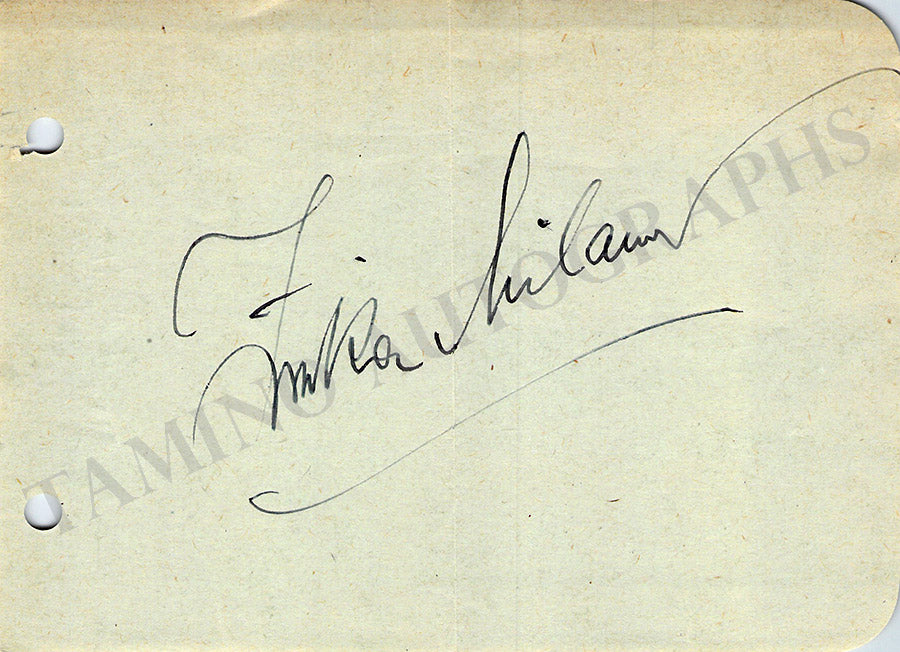 Zinka Milanov
TAMINO AUTOGRAPHS